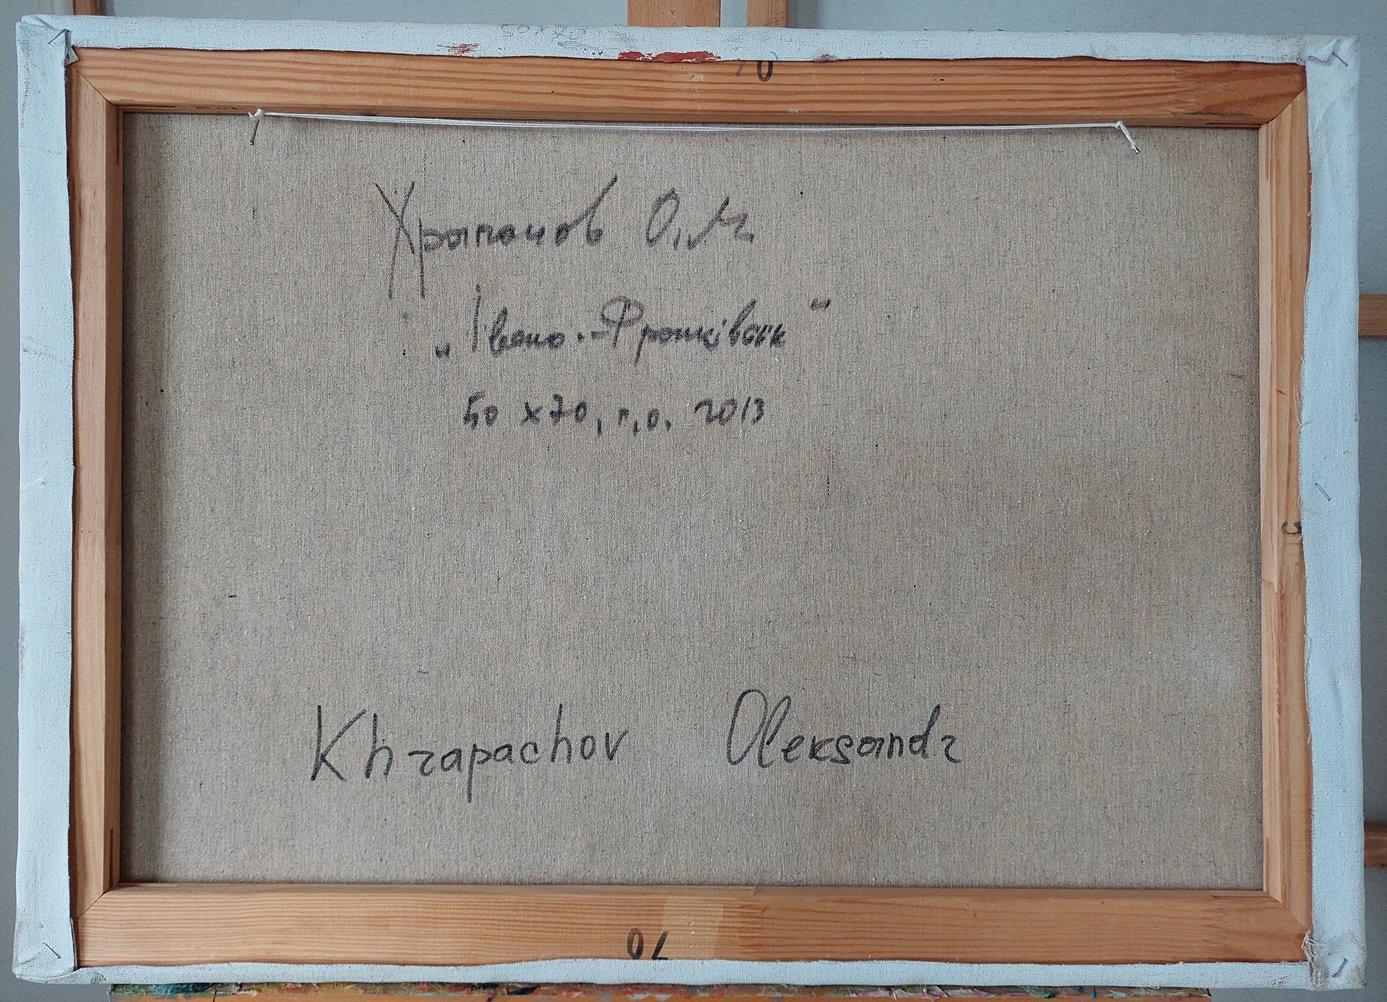 50x70
70
Храпачов О.М.
„Івано-Франківськ"
50 х 70, п,о. 2013
Khrapachov Oleksandr
70